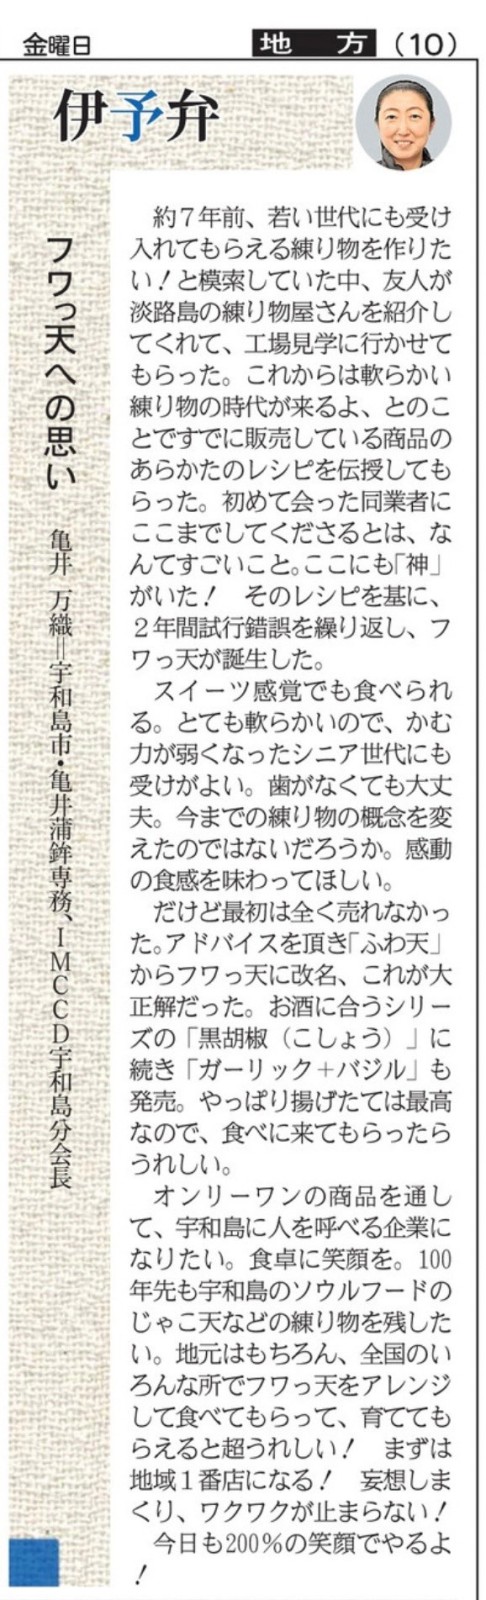 金曜日
地方
(10)
伊予弁
フワっ天への思い
亀井 万織＝宇和島市・亀井蒲鉾専務、IMCCD宇和島分会長
約７年前、若い世代にも受け
入れてもらえる練り物を作りた
い！と模索していた中、友人が
淡路島の練り物屋さんを紹介し
てくれて、工場見学に行かせて
もらった。これからは軟らかい
練り物の時代が来るよ、とのこ
とですでに販売している商品の
あらかたのレシピを伝授しても
らった。初めて会った同業者に
ここまでしてくださるとは、な
んてすごいこと。ここにも「神」
がいた！　そのレシピを基に、
２年間試行錯誤を繰り返し、フ
ワっ天が誕生した。
スイーツ感覚でも食べられ
る。とても軟らかいので、かむ
力が弱くなったシニア世代にも
受けがよい。歯がなくても大丈
夫。今までの練り物の概念を変
えたのではないだろうか。感動
の食感を味わってほしい。
だけど最初は全く売れなかっ
た。アドバイスを頂き「ふわ天」
からフワっ天に改名、これが大
正解だった。お酒に合うシリー
ズの「黒胡椒（こしょう）」に
続き「ガーリック＋バジル」も
発売。やっぱり揚げたては最高
なので、食べに来てもらったら
うれしい。
オンリーワンの商品を通し
て、宇和島に人を呼べる企業に
なりたい。食卓に笑顔を。100
年先も宇和島のソウルフードの
じゃこ天などの練り物を残した
い。地元はもちろん、全国のい
ろんな所でフワっ天をアレンジ
して食べてもらって、育てても
らえると超うれしい！　まずは
地域１番店になる！　妄想しま
くり、ワクワクが止まらない！
今日も200％の笑顔でやるよ
！